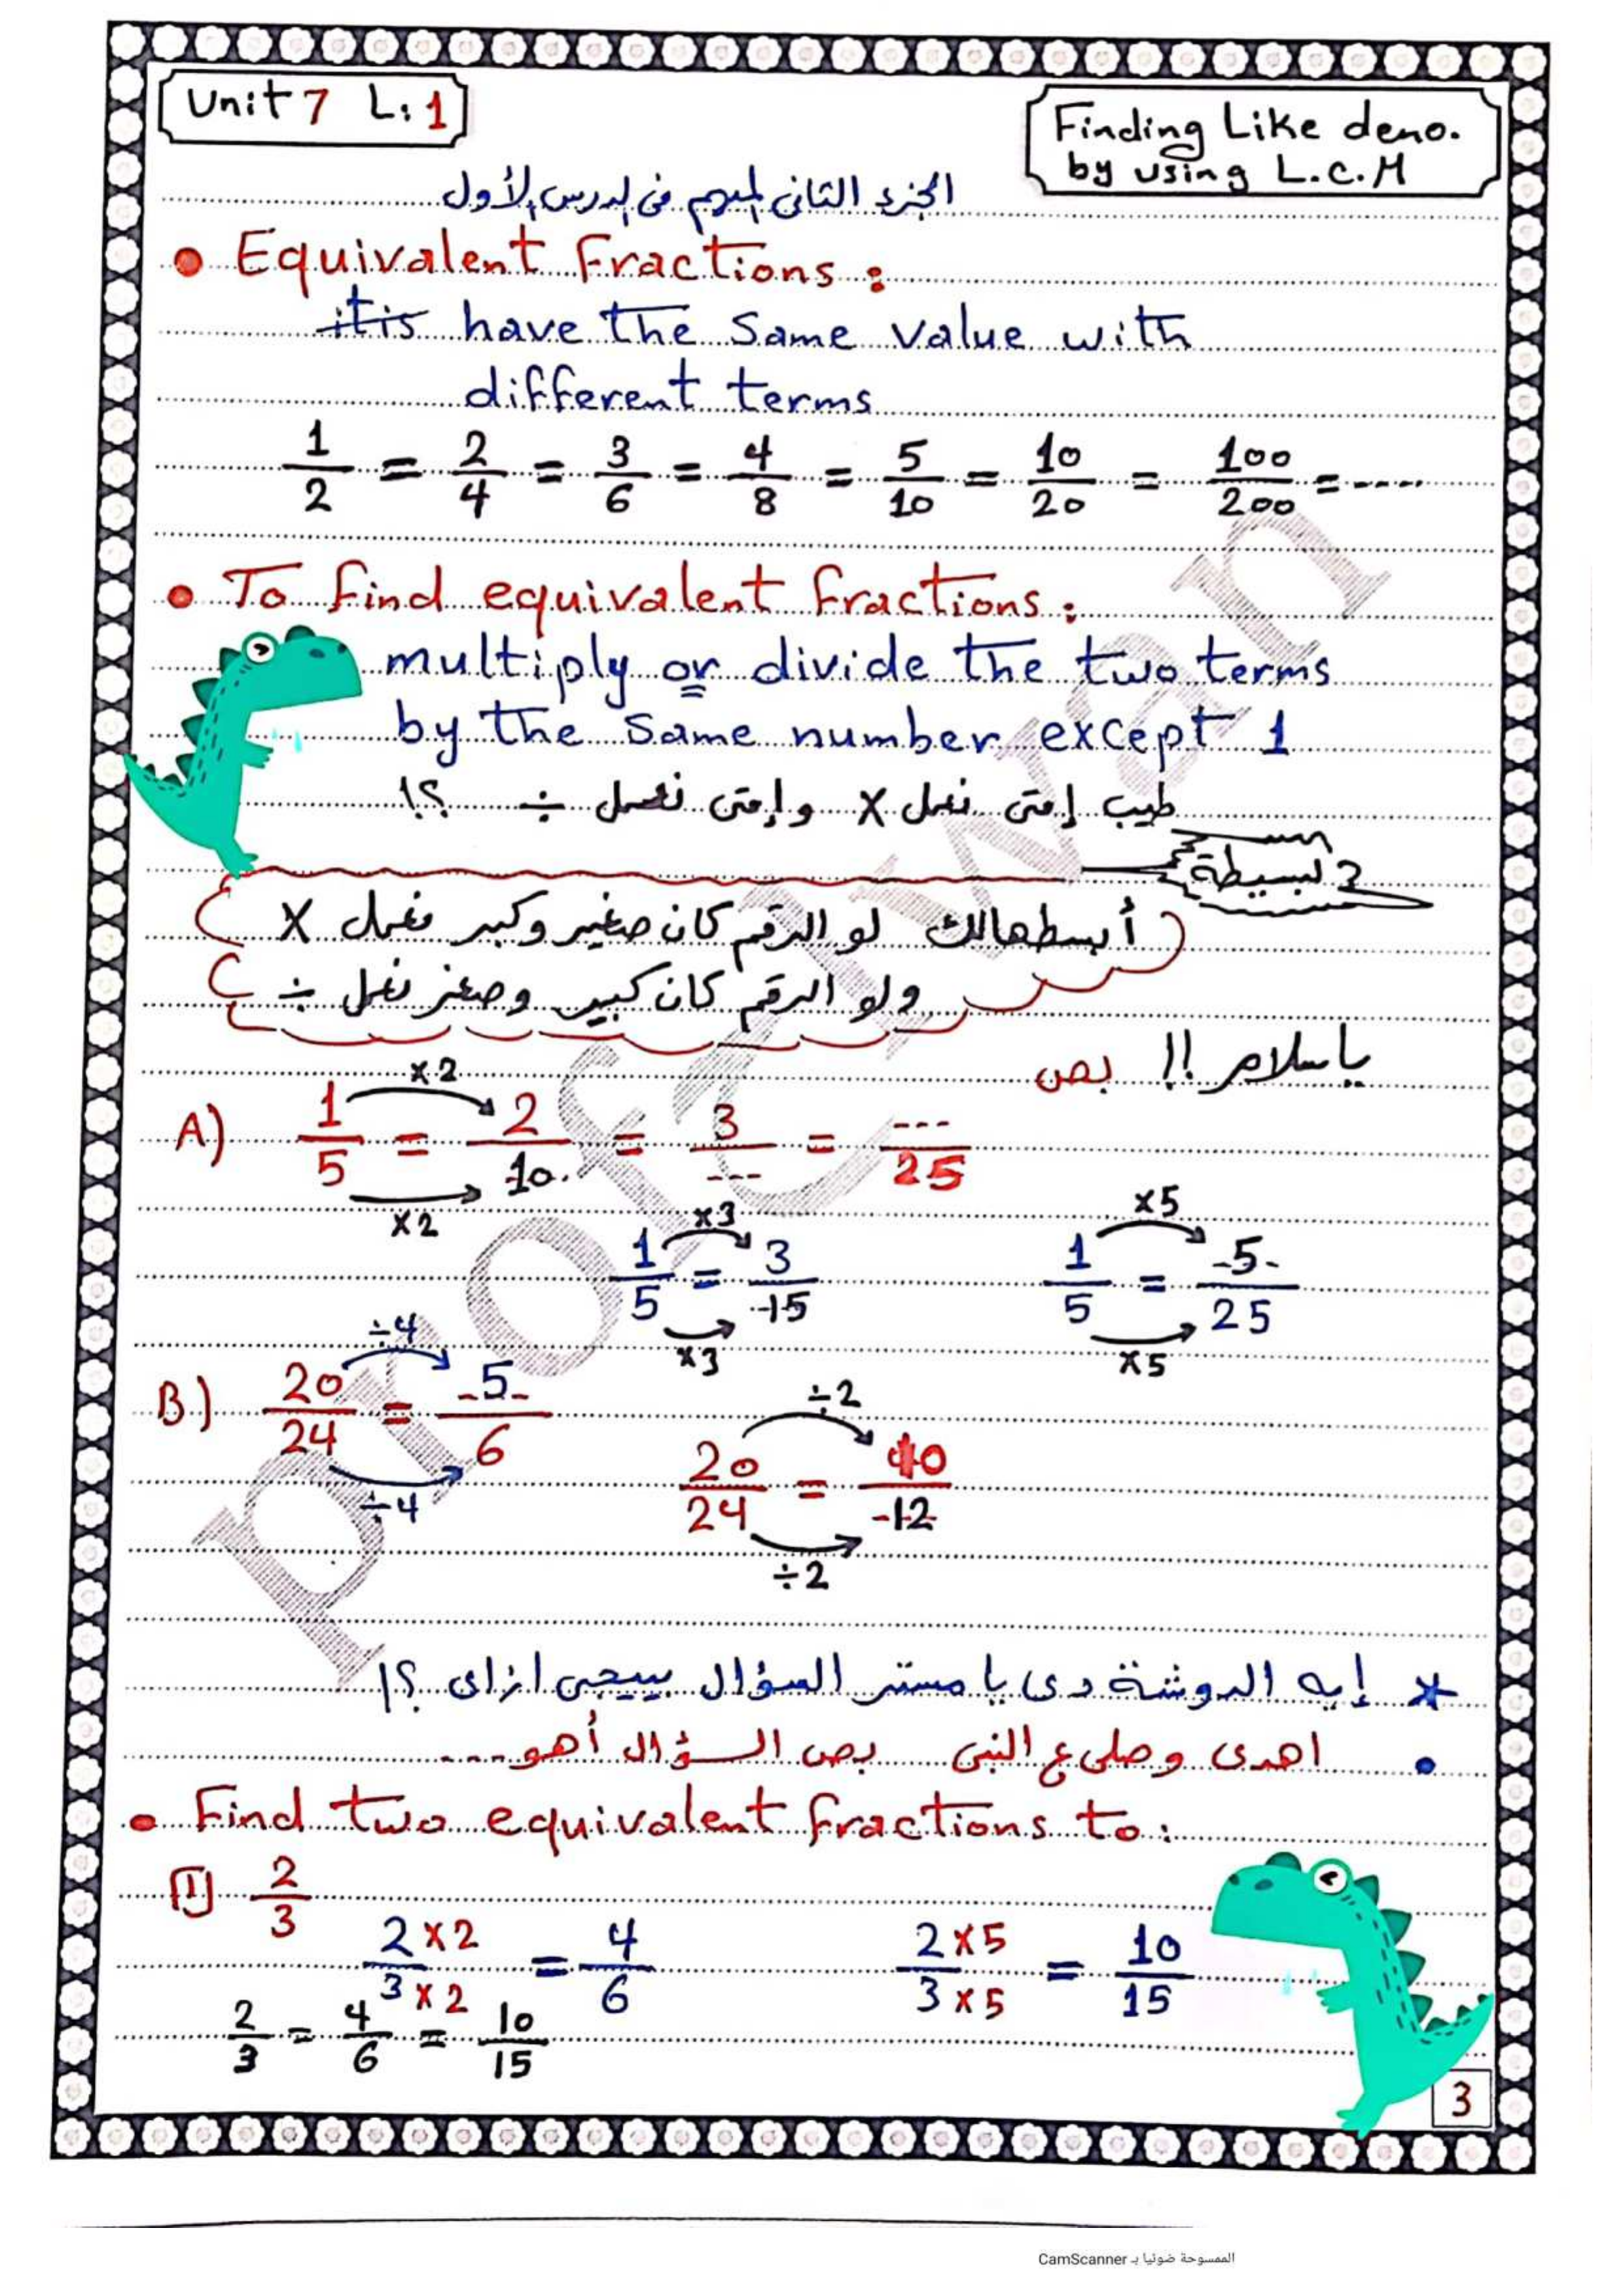 Unit 7 L: 1
Finding Like deno.
by using L.C.M
الجزء الثانى المهم فى الدرس الأول
• Equivalent Fractions :
it is have the same value with
different terms
1/2 = 2/4 = 3/6 = 4/8 = 5/10 = 10/20 = 100/200 = ----
• To find equivalent fractions :
multiply or divide the two terms
by the same number except 1
طيب إمتى نعمل × وإمتى نعمل ÷ ؟!
بسيطة
أبسطهالك لو الرقم كان صغير وكبر نعمل ×
ولو الرقم كان كبير وصغر نعمل ÷
ياسلام !! بص
×2
A) 1/5 = 2/10 = 3/--- = ---/25
×2
×3 ×5
1/5 = 3/15 1/5 = 5/25
×3 ×5
÷4 ÷2
B) 20/24 = 5/6 20/24 = 10/12
÷4 ÷2
* إيه الدوشة دى يا مستر السؤال بييجى ازاى ؟!
• اهدى وصلى ع النبى بص السؤال أهو ----
• Find two equivalent fractions to :
1 2/3
2×2/3×2 = 4/6 2×5/3×5 = 10/15
2/3 = 4/6 = 10/15
3
الممسوحة ضوئيا بـ CamScanner